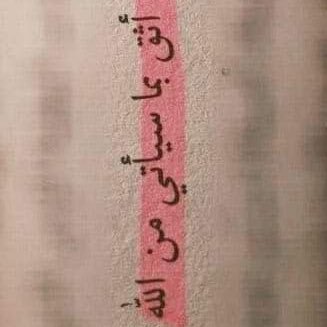 أثق بما سيأتي من الله